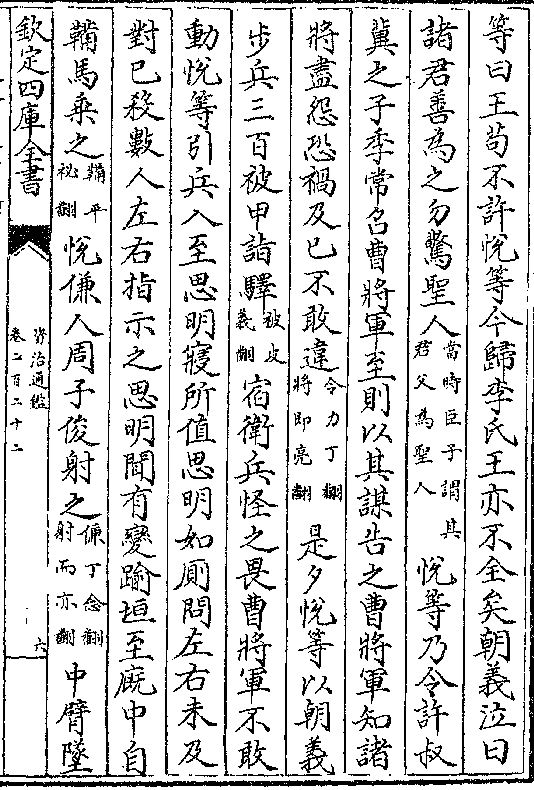 等曰王苟不許悅等今歸李氏王亦不全矣朝義泣曰
諸君善為之勿驚聖人當時臣子謂其君父為聖人悅等乃令許叔
冀之子季常召曹將軍至則以其謀告之曹將軍知諸
將盡怨恐禍及己不敢違令力丁翻將即亮翻是夕悅等以朝義
步兵三百被甲詣驛被皮義翻宿衛兵怪之畏曹將軍不敢
動悅等引兵入至思明寢所值思明如厠問左右未及
對已殺數人左右指示之思明聞有變踰垣至廐中自
鞴馬乗之鞴平祕翻悅傔人周子俊射之傔丁念翻射而亦翻中臂墜
欽定四庫全書
資治通鑑
卷二百二十二
六